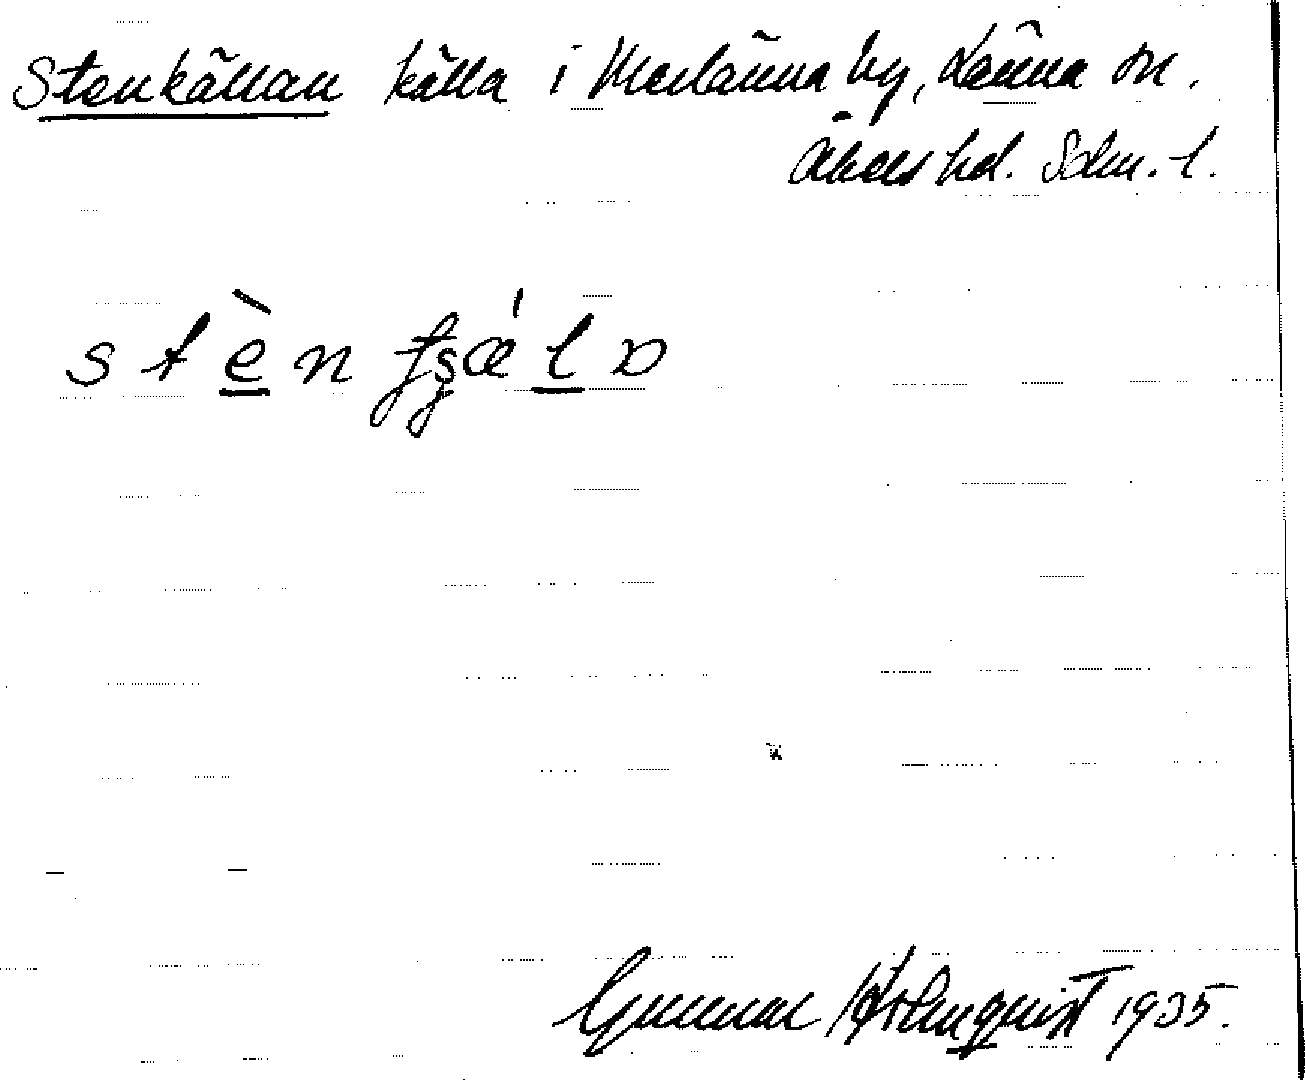 Stenkällan källa i Merlänna by, Länna sn.
Åkers hd. Sdm. l.
stèn
Gunnar Holmquist 1935.